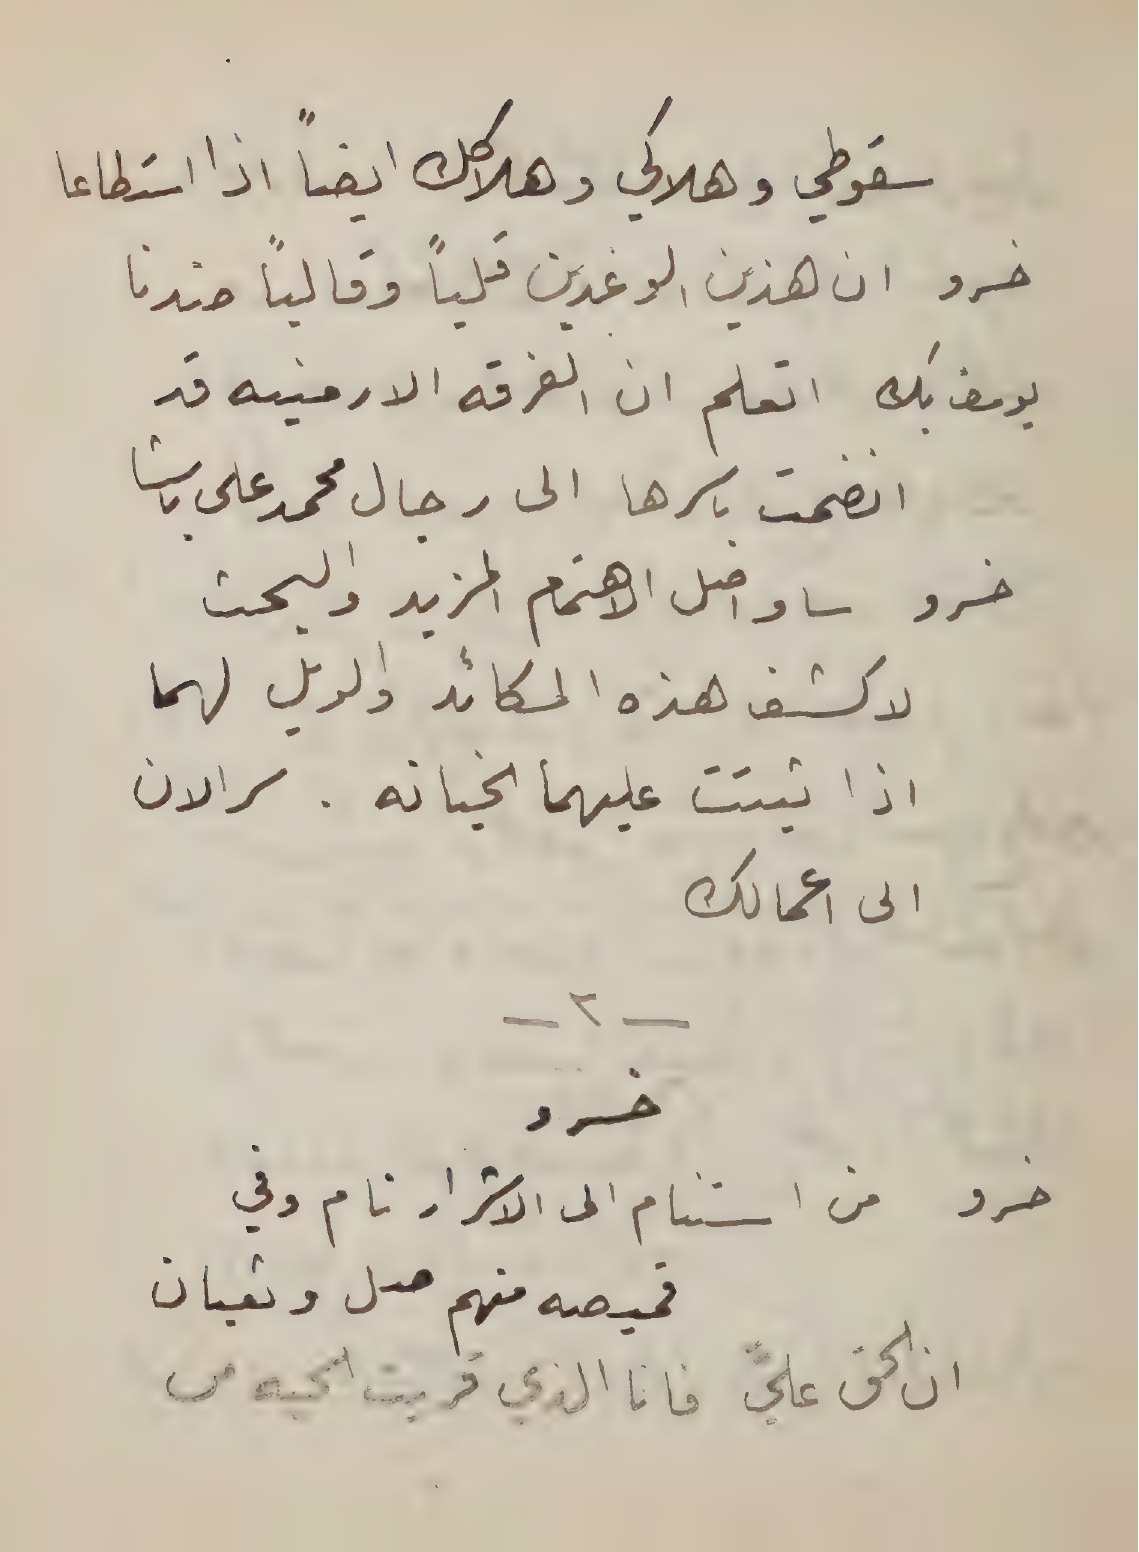 سقوطي وهلاكي وهلاكك ايضاً اذا استطاعا
خسرو ان هذين الوغدين قلباً وقالباً ضدنا
يوسف بك اتعلم ان الفرقه الارمنيه قد
انضمت باسرها الى رجال محمد على باشا
خسرو ساواصل الاهتمام المزيد والبحث
لاكشف هذه المكائد والويل لهما
اذا ثبتت عليهما الخيانه . سر الان
الى اعمالك
— ٢ —
خسرو
خسرو من استنام الى الاشرار نام وفي
قميصه منهم صل وثعبان
ان الحق عليَّ فانا الذي قربت الحيه من